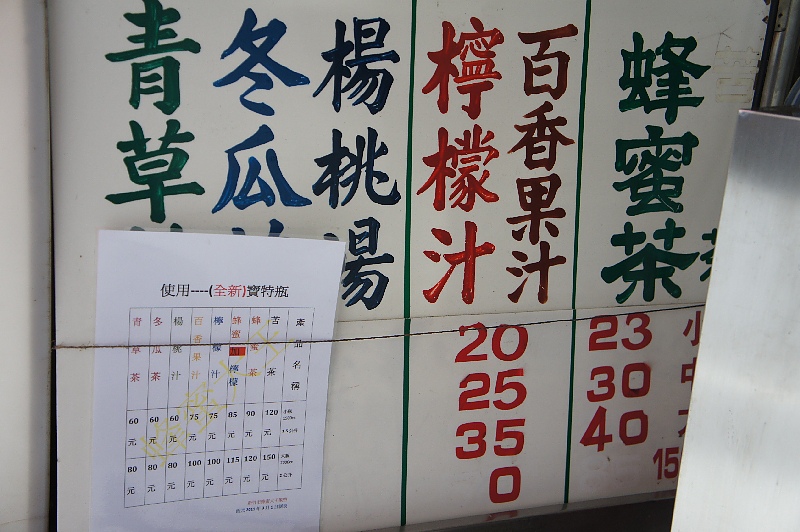 青草
冬瓜
楊桃湯
檸檬汁
百香果汁
蜂蜜茶
茶
20
25
35
0
23 小
30
40
15
使用----(全新)寶特瓶
青草茶
冬瓜茶
楊桃汁
百香果汁
檸檬汁
蜂蜜加檸檬
蜂蜜茶
苦茶
產品名稱
60元 60元 60元 75元 75元 85元 90元 120元
80元 80元 80元 100元 100元 115元 120元 150元